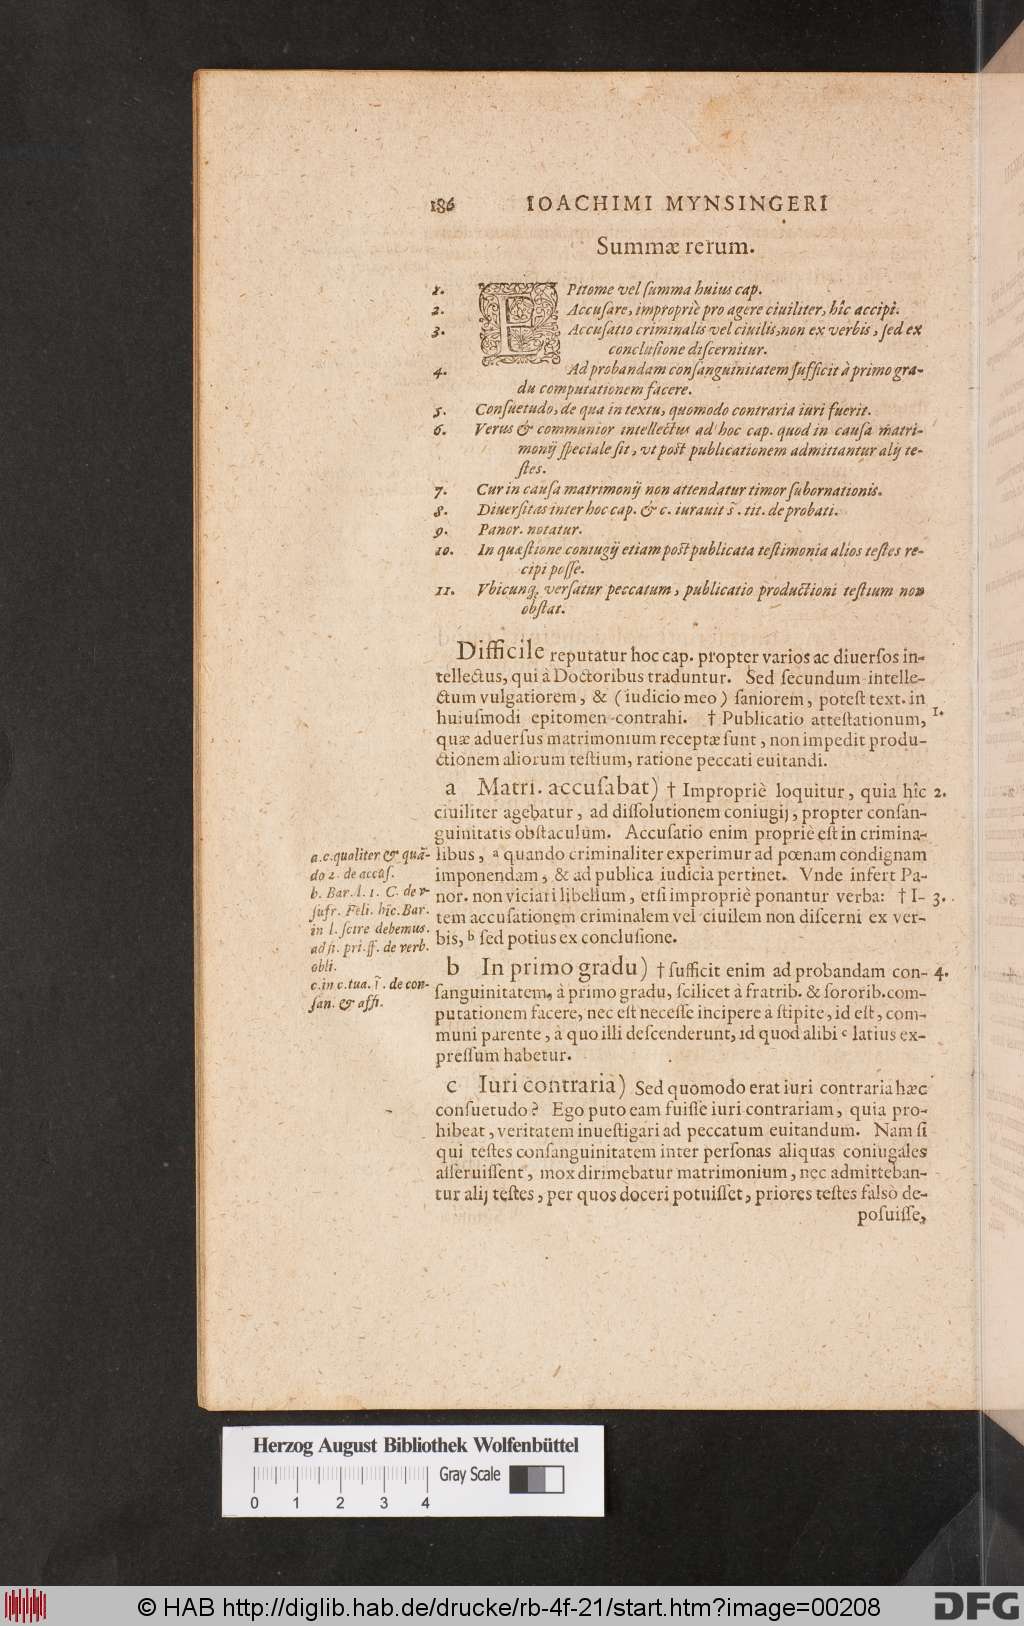 186 IOACHIMI MYNSINGERI
Summæ rerum.
1. EPitome vel ſumma huius cap.
2. Accuſare, impropriè pro agere ciuiliter, hîc accipi.
3. Accuſatio criminalis vel ciuilis, non ex verbis, ſed ex
concluſione diſcernitur.
4. Ad probandam conſanguinitatem ſufficit à primo gra-
du computationem facere.
5. Conſuetudo, de qua in textu, quomodo contraria iuri fuerit.
6. Verus & communior intellectus ad hoc cap. quod in cauſa matri-
monij ſpeciale ſit, vt poſt publicationem admittantur alij te-
ſtes.
7. Cur in cauſa matrimonij non attendatur timor ſubornationis.
8. Diuerſitas inter hoc cap. & c. iurauit s̃. tit. de probati.
9. Panor. notatur.
10. In quæſtione coniugij etiam poſt publicata teſtimonia alios teſtes re-
cipi poſſe.
11. Vbicunq; verſatur peccatum, publicatio productioni teſtium non
obſtat.
Difficile reputatur hoc cap. propter varios ac diuerſos in-
tellectus, qui à Doctoribus traduntur. Sed ſecundum intelle-
ctum vulgatiorem, & (iudicio meo) ſaniorem, poteſt text. in
huiuſmodi epitomen contrahi. † Publicatio atteſtationum, 1.
quæ aduerſus matrimonium receptæ ſunt, non impedit produ-
ctionem aliorum teſtium, ratione peccati euitandi.
a Matri. accuſabat) † Impropriè loquitur, quia hîc 2.
ciuiliter agebatur, ad diſſolutionem coniugij, propter conſan-
guinitatis obſtaculum. Accuſatio enim propriè eſt in crimina-
libus, a quando criminaliter experimur ad pœnam condignam
imponendam, & ad publica iudicia pertinet. Vnde infert Pa-
nor. non viciari libellum, etſi impropriè ponantur verba: † I- 3.
tem accuſationem criminalem vel ciuilem non diſcerni ex ver-
bis, b ſed potius ex concluſione.
a. c. qualiter & quã-
do 2. de accuſ.
b. Bar. l. 1. C. de v-
ſufr. Feli. hîc. Bar.
in l. ſcire debemus.
ad fi. pri. ff. de verb.
obli.
c. in c. tua. ĩ. de con-
ſan. & affi.
b In primo gradu) † ſufficit enim ad probandam con- 4.
ſanguinitatem, à primo gradu, ſcilicet à fratrib. & ſororib. com-
putationem facere, nec eſt neceſſe incipere à ſtipite, id eſt, com-
muni parente, à quo illi deſcenderunt, id quod alibi c latius ex-
preſſum habetur.
c Iuri contraria) Sed quomodo erat iuri contraria hæc
conſuetudo? Ego puto eam fuiſſe iuri contrariam, quia pro-
hibeat, veritatem inueſtigari ad peccatum euitandum. Nam ſi
qui teſtes conſanguinitatem inter perſonas aliquas coniugales
aſſeruiſſent, mox dirimebatur matrimonium, nec admitteban-
tur alij teſtes, per quos doceri potuiſſet, priores teſtes falsò de-
poſuiſſe,
Herzog August Bibliothek Wolfenbüttel
Gray Scale
0 1 2 3 4
© HAB http://diglib.hab.de/drucke/rb-4f-21/start.htm?image=00208
DFG